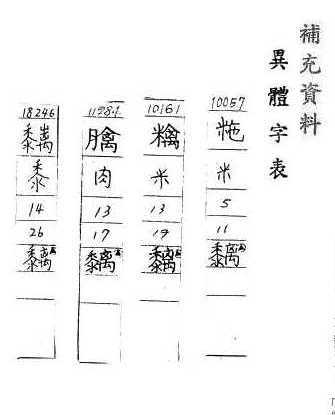 補充資料
異體字表
10057
粚
米
5
11
黐
10161
米
13
19
黐
11984
肉
13
17
黐
18246
黍
14
26
黐